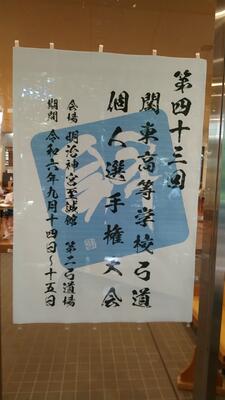 第四十三回
関東高等学校弓道
個人選手権大会
会場 明治神宮至誠館 第二弓道場
期間 令和六年九月十四日~十五日